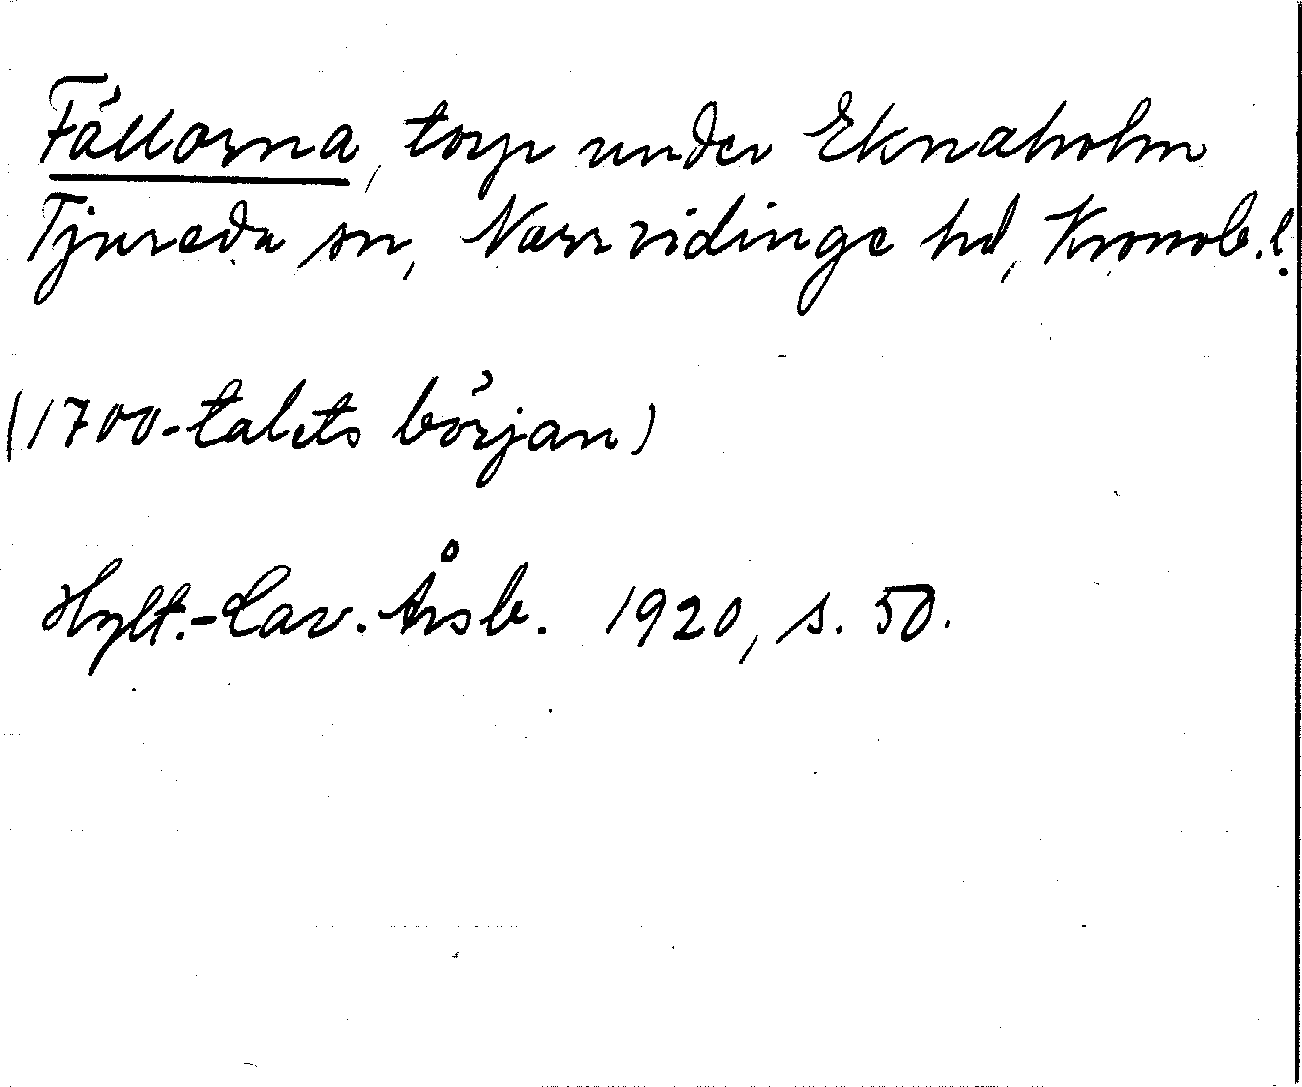 Fällorna, torp under Eknaholm
Tjureda sn, Norrvidinge hd, Kronob. l.
(1700-talets början)
Hylt.-Cav. Årsb. 1920, s. 50.